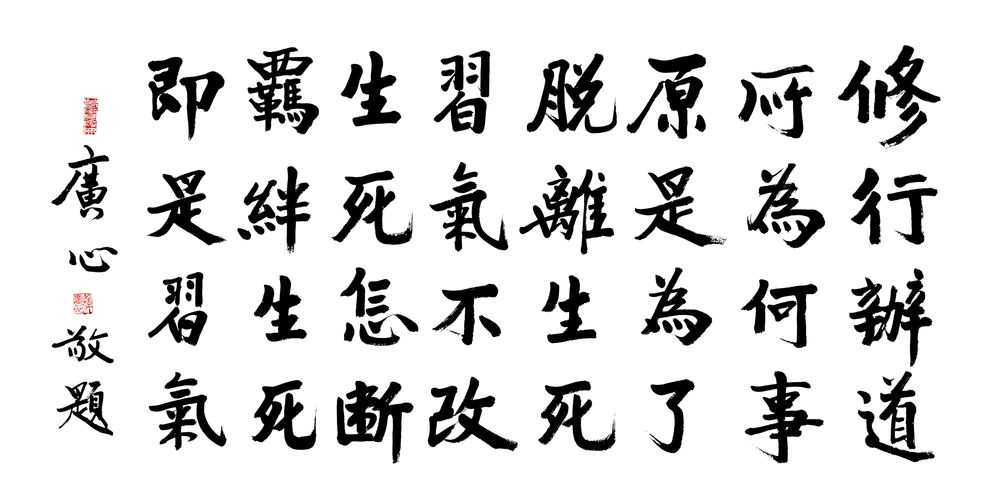 修行辦道
所為何事
原是為了
脫離生死
習氣不改
生死怎斷
羈絆生死
即是習氣
廣心敬題